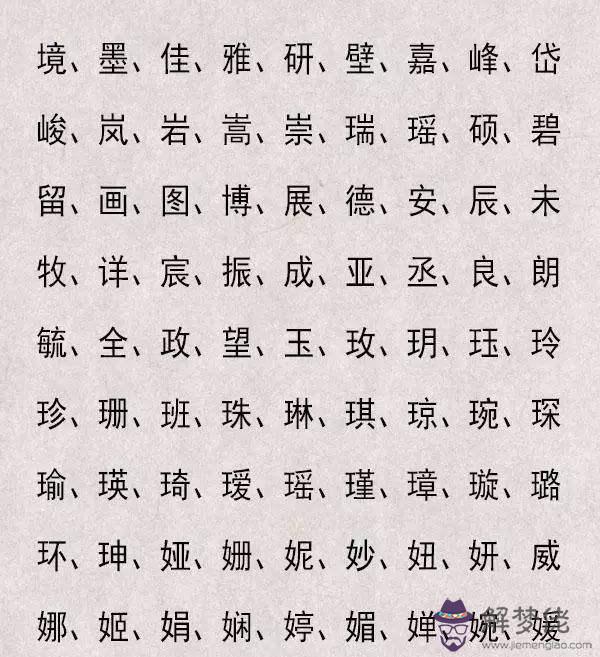 境、墨、佳、雅、研、壁、嘉、峰、岱
峻、岚、岩、嵩、崇、瑞、瑶、硕、碧
留、画、图、博、展、德、安、辰、未
牧、详、宸、振、成、亚、丞、良、朗
毓、全、政、望、玉、玫、玥、珏、玲
珍、珊、班、珠、琳、琪、琼、琬、琛
瑜、瑛、琦、瑷、瑶、瑾、璋、璇、璐
环、珅、娅、姗、妮、妙、妞、妍、威
娜、姬、娟、娴、婷、媚、婵、婉、媛
解梦佬
www.jiemengjiao.com